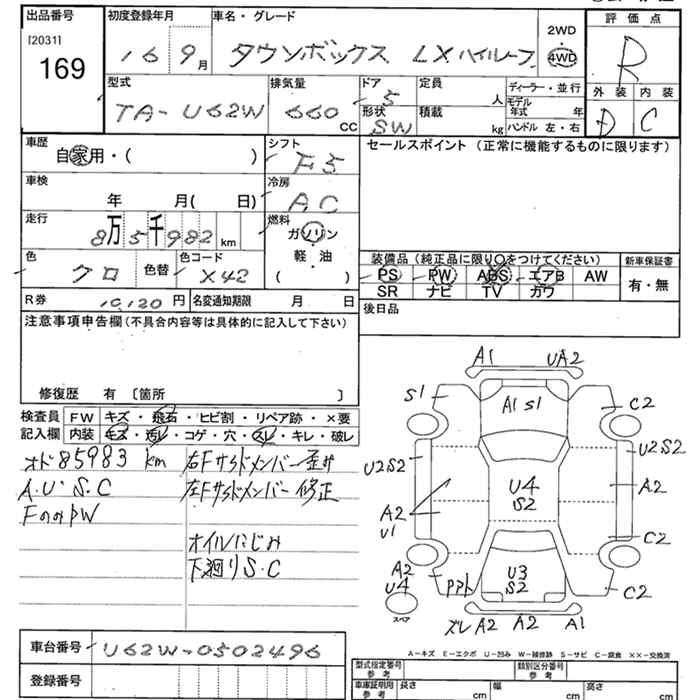 出品番号
[2031]
169
初度登録年月
16 9月
車名・グレード
タウンボックス LXハイルーフ
2WD
4WD
評価点
R
外装 内装
D C
型式
TA-U62W
排気量
660 cc
ドア
5
形状
SW
定員
人
積載
kg
ディーラー・並行
モデル年式 年
ハンドル 左・右
車歴
自家用・( )
シフト
F5
セールスポイント(正常に機能するものに限ります)
車検
年 月( 日)
冷房
AC
走行
8万5千982km
燃料
ガソリン
軽・油
( )
色
クロ
色替
色コード
X42
装備品(純正品に限り○をつけてください)
新車保証書
PS PW ABS エアB AW
SR ナビ TV カワ
有・無
R券 10,120円
名変通知期限 月 日
後日品
注意事項申告欄(不具合内容等は具体的に記入して下さい)
修復歴 有 〔箇所 〕
検査員記入欄
FW キズ・飛石・ヒビ割・リペア跡・×要
内装 キズ・汚レ・コゲ・穴・スレ・キレ・破レ
オド85983km
A.U.S.C
FのみPW
右Fサイドメンバー歪み
左Fサイドメンバー修正
オイルにじみ
下廻りS.C
A1 UA2
S1 A1 S1 C2
U2S2 U2S2
U4 S2
A2
A2 U1
C2
A2 U4
U3 S2
C2
スペア
ズレ A2 A2 A1
A-キズ E-エクボ U-凹み W-補修跡 S-サビ C-腐食 ××-交換済
車台番号 U62W-0502496
登録番号
型式指定番号 参考
類別区分番号 参考
車庫証明用 参考
長さ cm
幅 cm
高さ cm